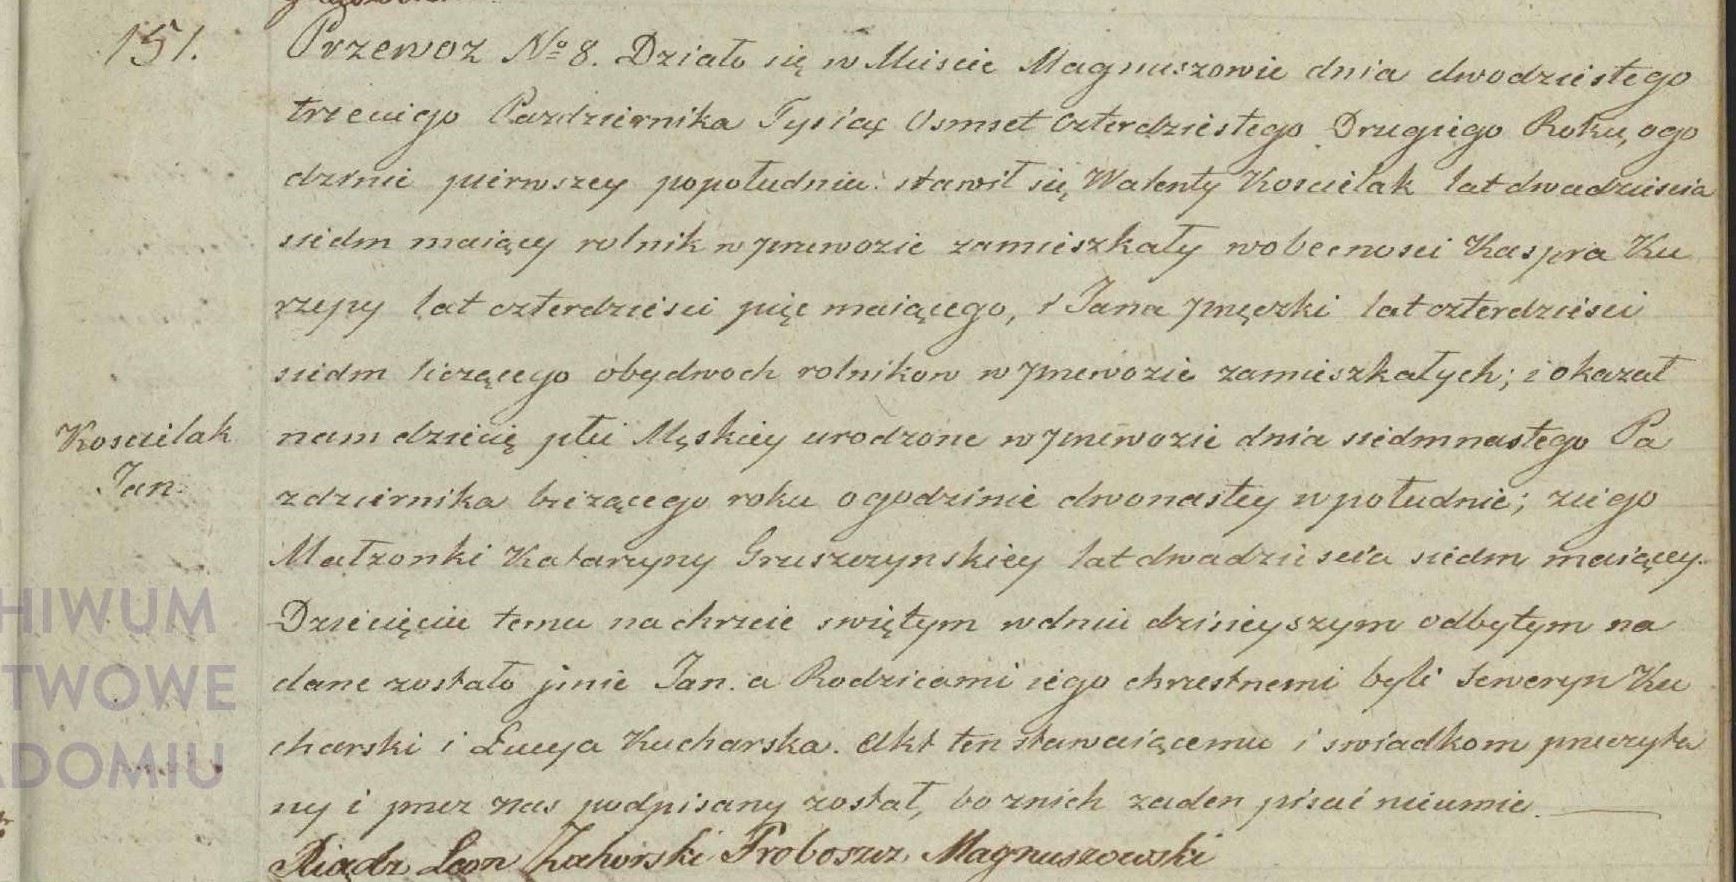 151.
Przewoz No 8. Działo się w Miescie Magnuszowie dnia dwodziestego
trzeciego Pazdziernika Tysiąc Osmset czterdziestego Drugiego Roku, ogo
dzinie pierwszey popołudniu. stawił się Walenty Koscielak lat dwadziescia
siedm maiący rolnik w przewozie zamieszkały w obecnosci Kaspra Ku
rzepy lat czterdziesci pięc maiącego, i Jana pręczki lat czterdziesci
siedm liczącego obydwoch rolnikow w przewozie zamieszkałych; i okazał
Koscielak
Jan.
nam dziecię płci Męskiey urodzone w przewozie dnia siedmnastego Pa
zdziernika bieżącego roku o godzinie dwonastey w południe; z iego
Małzonki Katarzyny Gruszczynskiey lat dwadziescia siedm maiącey.
Dziecięciu temu na chrzcie swiętym w dniu dzisieyszym odbytym na
dane zostało jmie Jan. a Rodzicami iego chrzestnemi byli Seweryn Ku
charski i Łucya Kucharska. Akt ten stawaiącemu i swiadkom przeczyta
ny i przez nas podpisany został, bo znich zaden pisać nieumie.
Xiądz Leon Zahorski Proboszcz Magnuszowski
HIWUM
TWOWE
ADOMIU